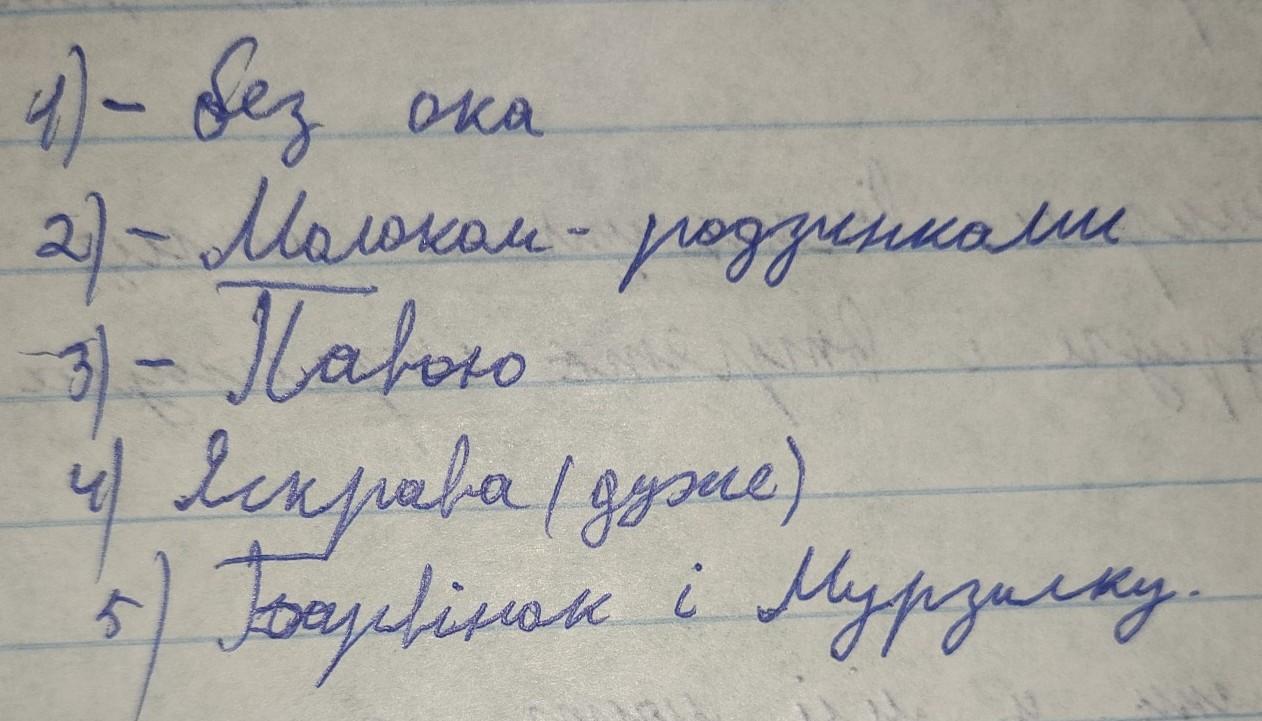 1) - без ока
2) - Молоком - родзинками
3) - Павою
4) Яскрава (дуже)
5) Барвінок і Мурзилку.